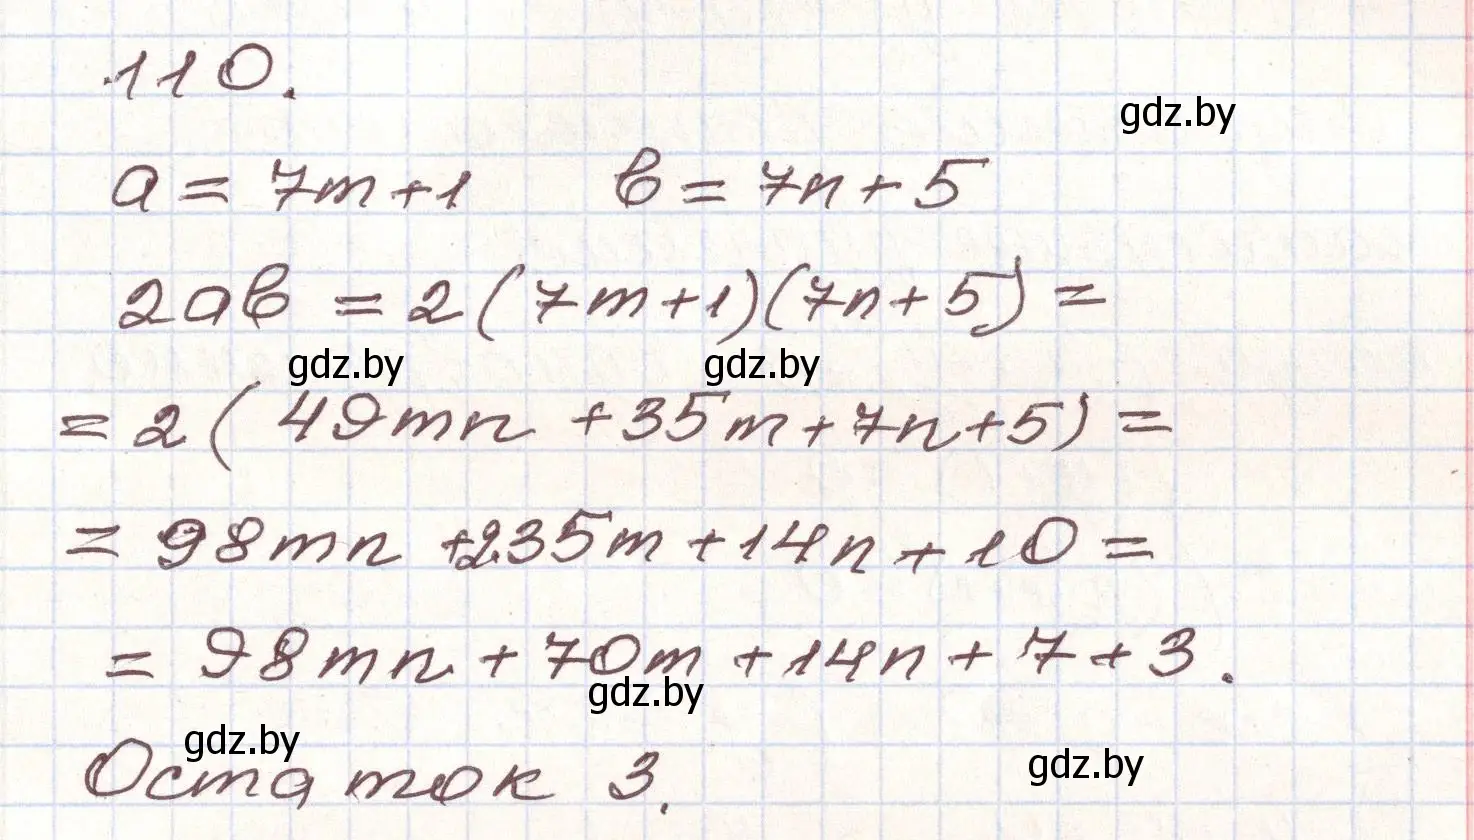 110.
gdz.by
a = 7m+1   b = 7n+5
2ab = 2(7m+1)(7n+5) =
gdz.by gdz.by
= 2(49mn + 35m + 7n + 5) =
= 98mn + 235m + 14n + 10 =
= 98mn + 70m + 14n + 7 + 3.
gdz.by
gdz.by
Остаток 3.
gdz.by